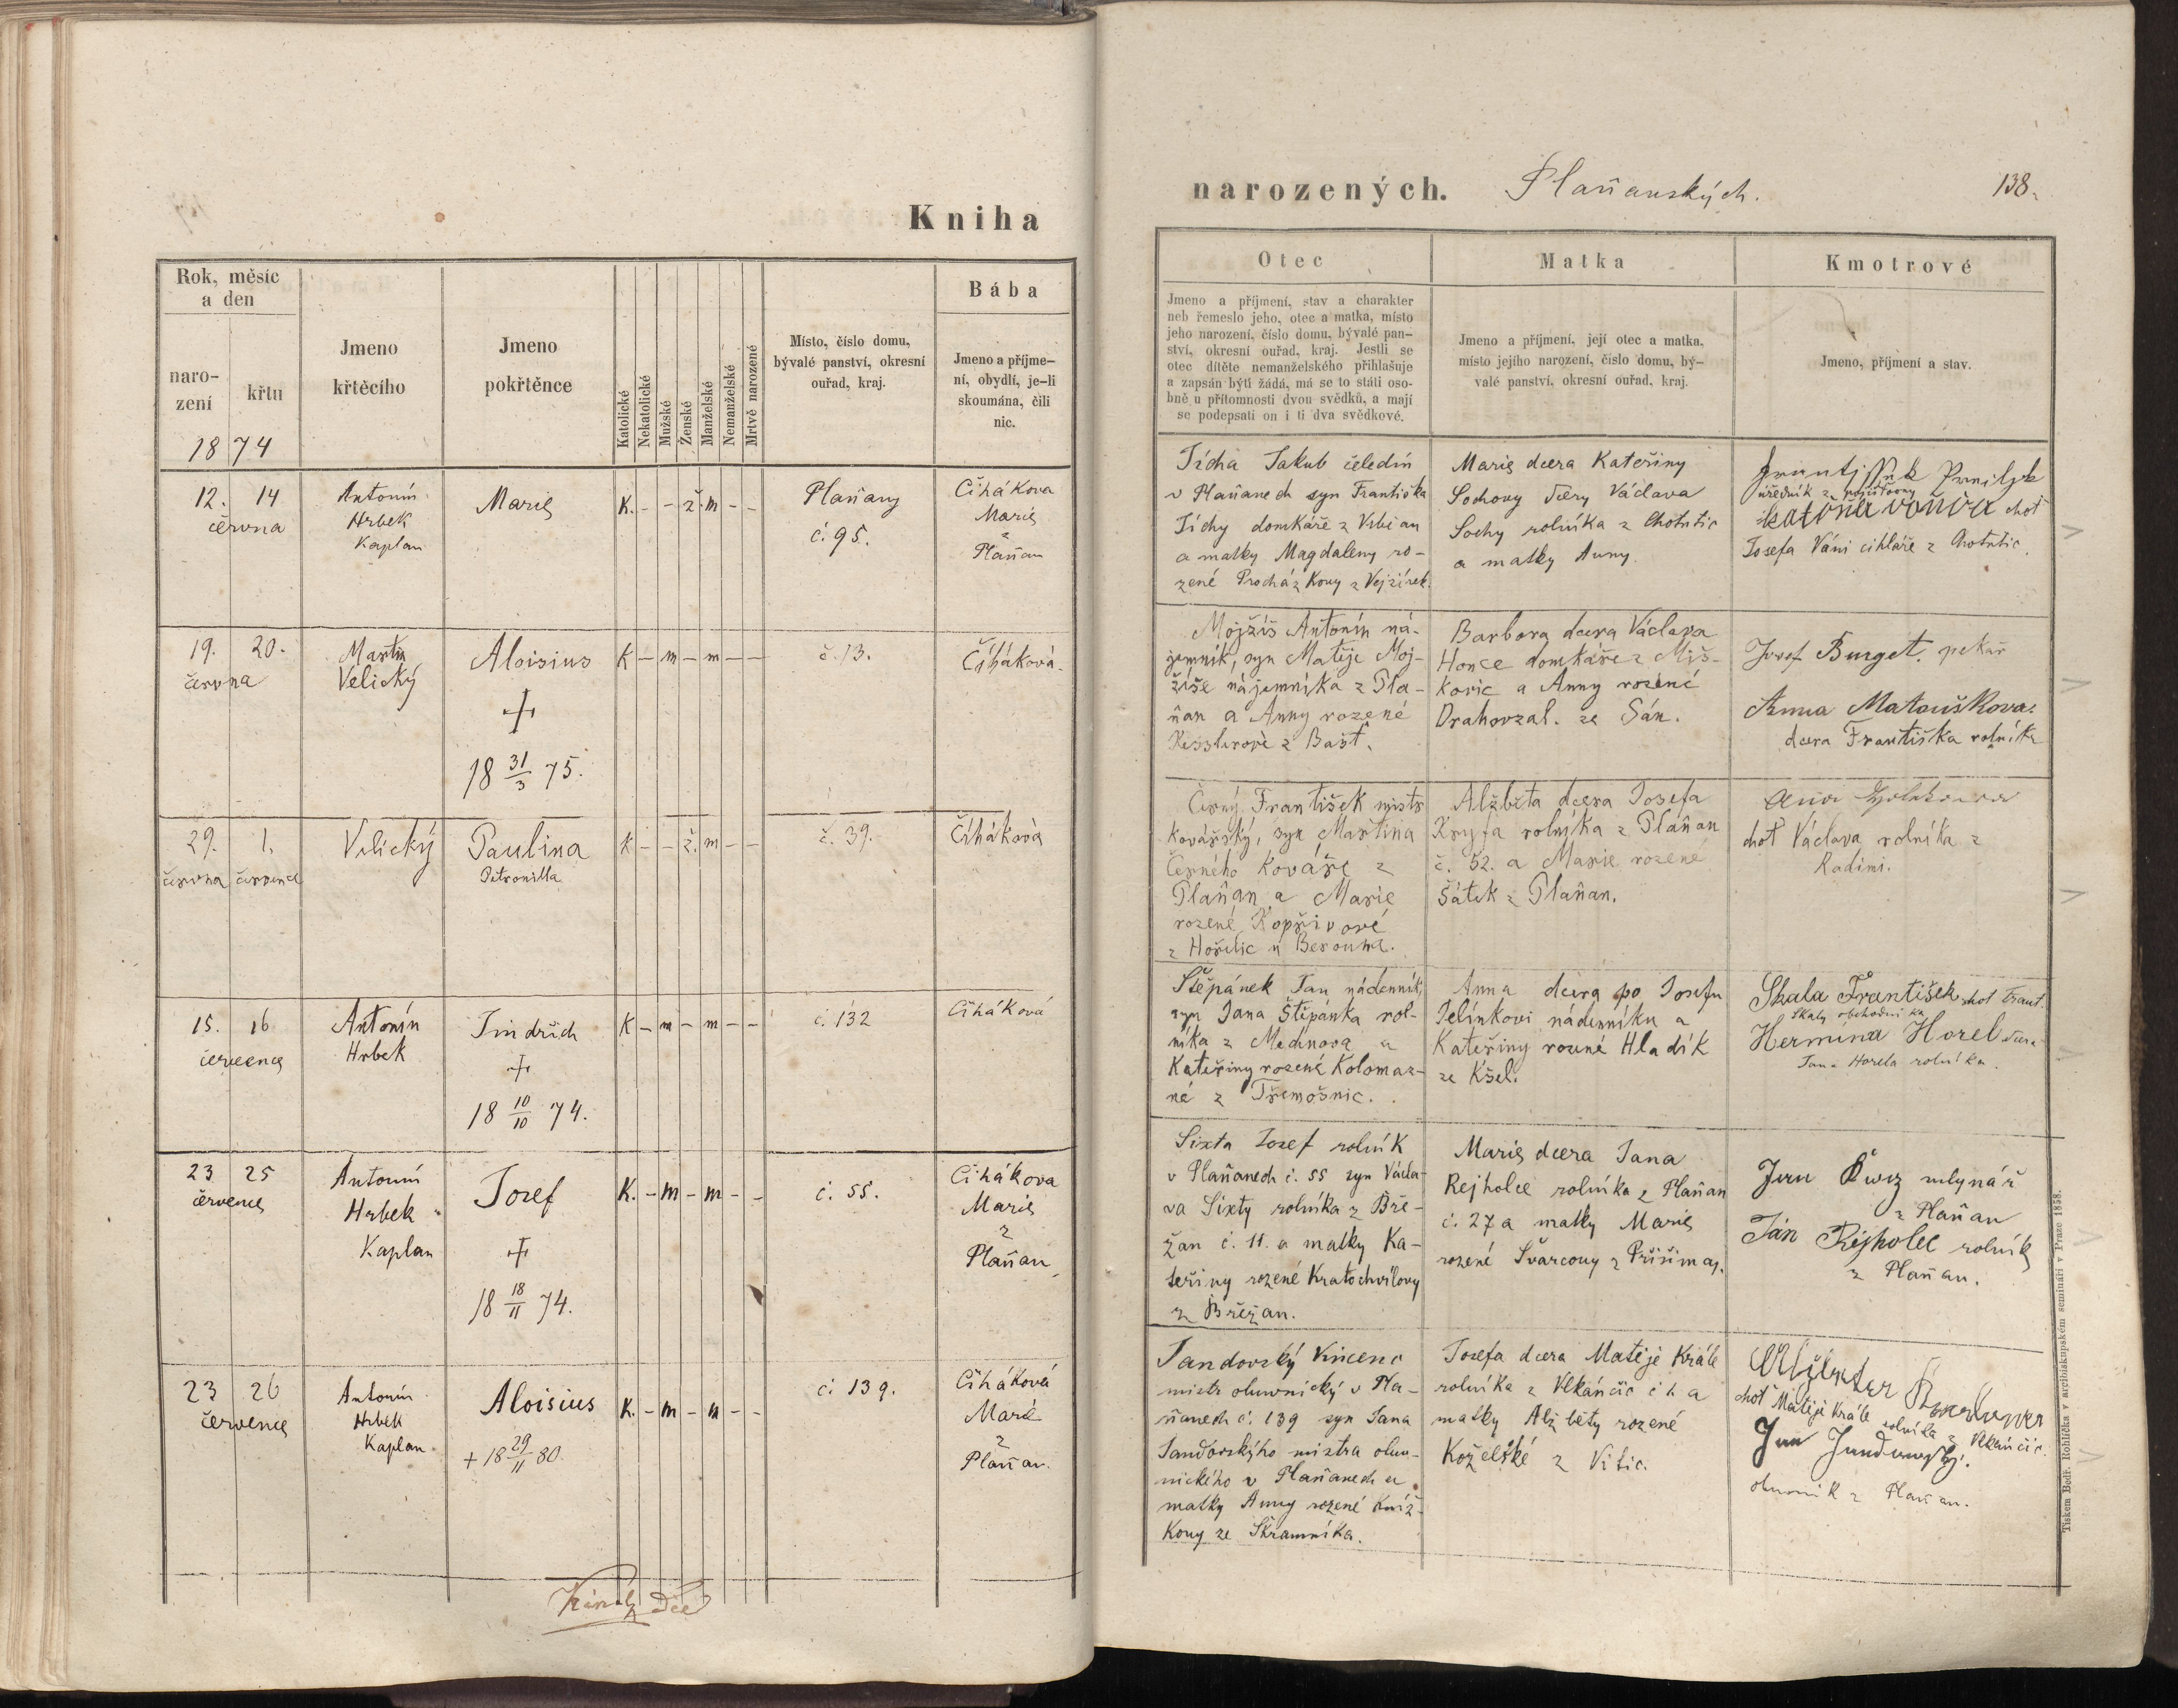 Kniha
Rok, měsíc
a den
naro-
zení
křtu
1874
Jmeno
křtěcího
Jmeno
pokřtěnce
Katolické
Nekatolické
Mužské
Ženské
Manželské
Nemanželské
Mrtvě narozené
Místo, číslo domu,
bývalé panství, okresní
ouřad, kraj.
Bába
Jmeno a příjme-
ní, obydlí, je-li
skoumána, čili
nic.
12. 14
června
Antonín
Hrbek
Kaplan
Marie
K. - - ž. m - -
Plaňany
č. 95.
Čiháková
Marie
z
Plaňan
19. 20.
června
Martin
Velický
Aloisius
+
18 31/3 75.
K - m - m - -
č. 13.
Čiháková.
29. 1.
června července
Velický
Paulina
Petronilla
K - - ž. m - -
č. 39.
Čiháková
15. 16
července
Antonín
Hrbek
Jindřich
+
18 10/10 74.
K - m - m - -
č. 132
Čiháková
23 25
července
Antonín
Hrbek
Kaplan
Josef
+
18 18/11 74.
K. - m - m - -
č. 55.
Čihákova
Marie
z
Plaňan
23 26
července
Antonín
Hrbek
Kaplan.
Aloisius
+ 18 29/11 80.
K. - m - m - -
č. 139.
Čiháková
Marie
z
Plaňan.
narozených. Plaňanských. 138.
Otec
Jmeno a příjmení, stav a charakter
neb řemeslo jeho, otec a matka, místo
jeho narození, číslo domu, bývalé pan-
ství, okresní ouřad, kraj. Jestli se
otec dítěte nemanželského přihlašuje
a zapsán býti žádá, má se to státi oso-
bně u přítomnosti dvou svědků, a mají
se podepsati on i ti dva svědkové.
Matka
Jmeno a příjmení, její otec a matka,
místo jejího narození, číslo domu, bý-
valé panství, okresní ouřad, kraj.
Kmotrové
Jmeno, příjmení a stav.
Tichá Jakub čeledín
v Plaňanech syn Františka
Tichy domkáře z Vrbčan
a matky Magdaleny ro-
zené Procházkovy z
Marie dcera Kateřiny
Sochovy dcery Václava
Sochy rolníka z Chotutic
a matky Anny.
úředník z
choť
Josefa Váni cihláře z Chotutic.
Mojžíš Antonín ná-
jemník, syn Matěje Moj-
žíše nájemníka z Pla-
ňan a Anny rozené
Kesslerové z Bašt.
Barbora dcera Václava
Honce domkáře z Miš-
kovic a Anny rozené
Drahovzal. ze Sán.
Josef Burget. pekař
Anna Matouškova.
dcera Františka rolníka
Černý František mistr
kovářský, syn Martina
Černého kováře z
Plaňan a Marie
rozené Kopřivové
z Hořelic u Berouna.
Alžběta dcera Josefa
Kryfa rolníka z Plaňan
č. 52. a Marie rozené
Šátek z Plaňan.
choť Václava rolníka z
Radimi.
Štěpánek Jan nádenník,
syn Jana Štěpánka rol-
níka z a
Kateřiny rozené Kolomaz-
né z Třemošnic.
Anna dcera po Josefu
Jelínkovi nádenníku a
Kateřiny rozené Hladík
ze Kšel.
Skala František choť Frant.
Skaly obchodníka
Hermína Horel dcera
Jana Horela rolníka.
Sixta Josef rolník
v Plaňanech č. 55 syn Václa-
va Sixty rolníka z Bře-
žan č. 11. a matky Ka-
teřiny rozené Kratochvílovy
z Břežan.
Marie dcera Jana
Rejholce rolníka z Plaňan
č. 27 a matky Marie
rozené Švarcovy z Přišimas.
Jan mlynář
z Plaňan
Ján Rejholec rolník
z Plaňan.
Jandovský Vincenc
mistr obuvnický v Pla-
ňanech č. 139 syn Jana
Jandovskýho mistra obuv-
nického v Plaňanech a
matky Anny rozené Kníž-
kovy ze Skramníka.
Josefa dcera Matěje Krále
rolníka z Vlkančic č 4 a
matky Alžběty rozené
Koželské z Vitic.
choť Matěje Krále rolníka z Vlkančic.
Jan Jandovský.
obuvník z Plaňan.
Tiskem Bedř. Rohlíčka v arcibiskupském semináři v Praze 1858.